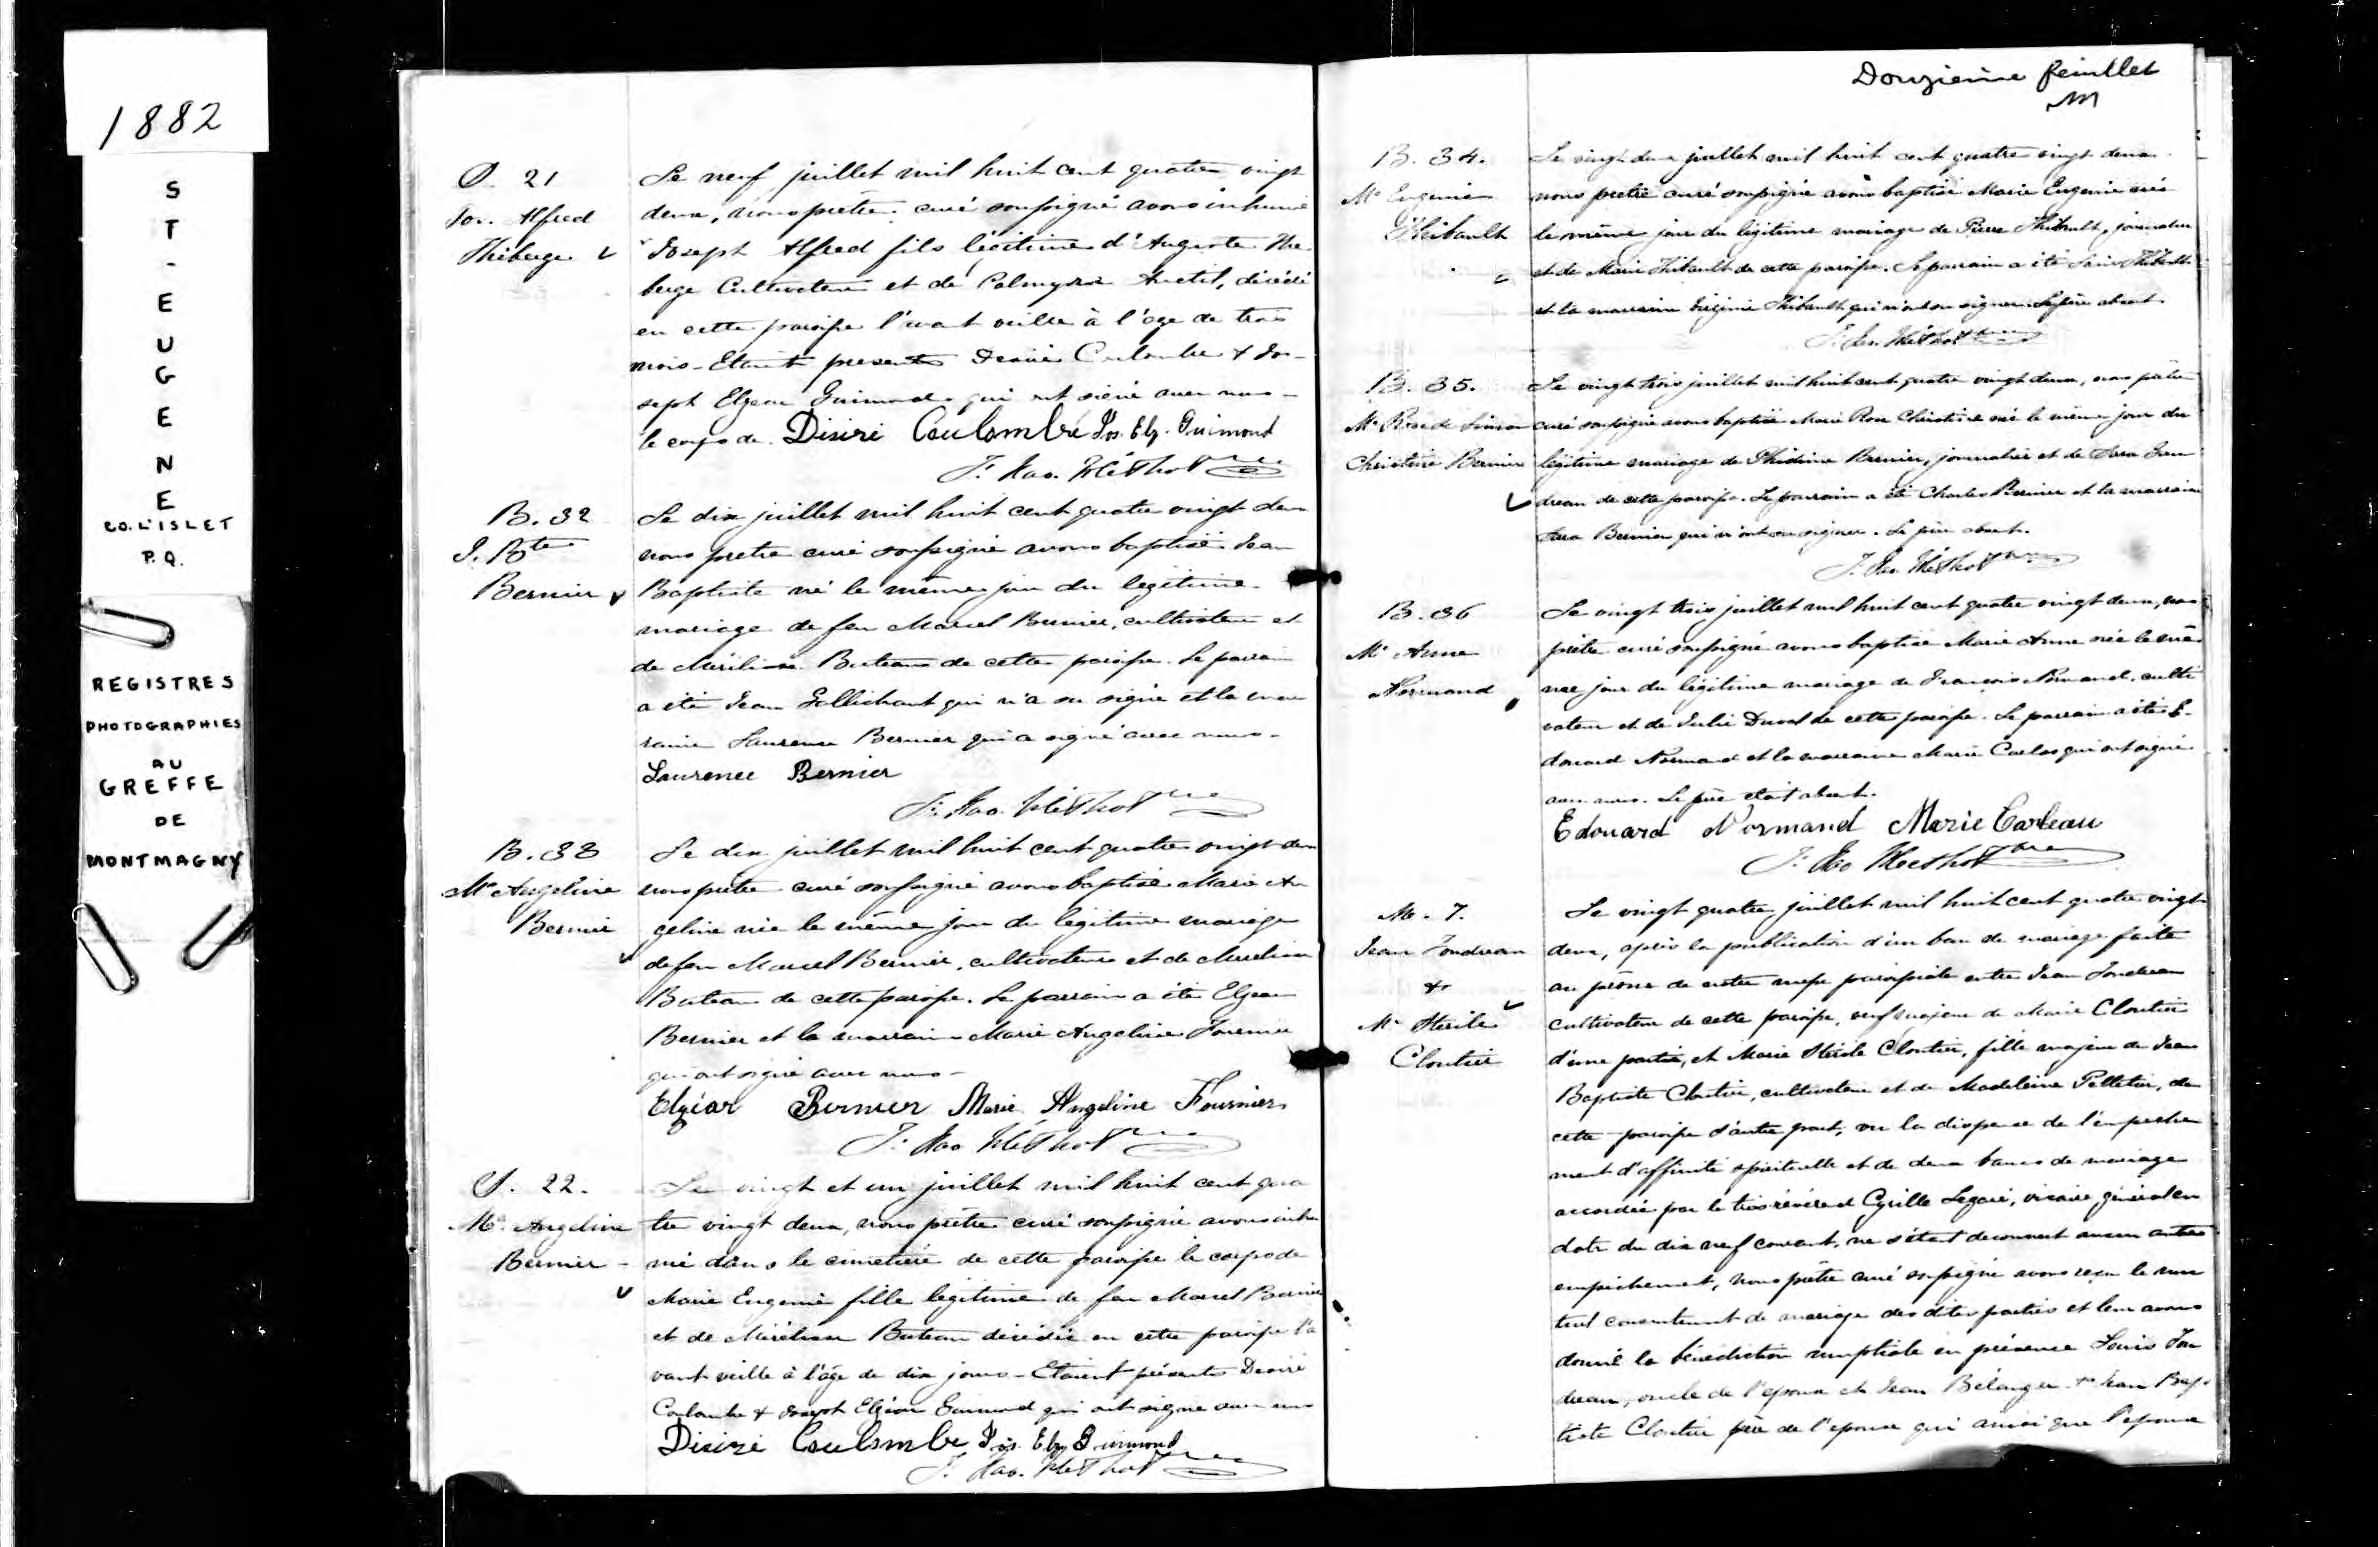 1882
ST-EUGENE
CO. L'ISLET
P.Q.
REGISTRES
PHOTOGRAPHIES
AU
GREFFE
DE
MONTMAGNY
S. 21
Jos. Alfred
Théberge
Le neuf juillet mil huit cent quatre vingt
deux, nous prêtre curé soussigné avons inhumé
Joseph Alfred fils légitime d'Auguste Thé
berge Cultivateur et de Palmyre Anctil, décédé
en cette paroisse l'avant veille à l'âge de trois
mois - Etaient presents Desiré Coulombe & Jo-
seph Elzear Guimond qui ont signé avec nous -
le corps de. Disiré Coulombe Jos. Elz. Guimond
Méthot Ptre
B. 32
J. Bte
Bernier
Le dix juillet mil huit cent quatre vingt deux
nous pretre curé soussigné avons baptisé Jean
Baptiste né le même jour du légitime
mariage de feu Marcel Bernier, cultivateur et
de Buteau de cette paroisse. Le parrain
a été Jean Gallichant qui n'a su signé et la mar
raine Laurence Bernier qui a signé avec nous -
Laurence Bernier
Méthot Ptre
B. 33
Me Angéline
Bernier
Le dix juillet mil huit cent quatre vingt deux
nous pretre curé soussigné avons baptisé Marie An
geline née le même jour du légitime mariage
de feu Marcel Bernier, cultivateur et de
Buteau de cette paroisse. Le parrain a été Elzear
Bernier et la marraine Marie Angeline Fournier
qui ont signé avec nous -
Elzéar Bernier Marie Angéline Fournier
Méthot Ptre
S. 22.
Me Angeline
Bernier -
Le vingt et un juillet mil huit cent qua
tre vingt deux, nous prêtre curé soussigné avons inhu
mé dans le cimetière de cette paroisse le corps de
Marie Eugenie fille légitime de feu Marcel Bernier
et de Buteau décédée en cette paroisse l'a
vant veille à l'âge de dix jours - Etaient présents Desiré
Coulombe & Joseph Elzéar Guimond qui ont signé avec nous
Disiré Coulombe Jos. Elz Guimond
Méthot Ptre
Douzième feuillet
B. 34.
Me Eugenie
Thibault
Le vingt deux juillet mil huit cent quatre vingt deux
nous pretre curé soussigné avons baptisé Marie Eugenie née
le même jour du légitime mariage de Pierre Thibault, journalier
et de Marie Thibault de cette paroisse. Le parrain a été Thibault
et la marraine Thibault qui n'ont su signer. Le père absent.
Méthot Ptre
B. 35.
Me Rose
Christine Bernier
Le vingt trois juillet mil huit cent quatre vingt deux, nous prêtre
curé soussigné avons baptisé Marie Rose Christine née le même jour du
légitime mariage de Bernier, journalier et de
dreau de cette paroisse. Le parrain a été Charles Bernier et la marraine
Bernier qui n'ont su signer. Le père absent.
Méthot Ptre
B. 36
Me Anne
Normand
Le vingt trois juillet mil huit cent quatre vingt deux, nous
prêtre curé soussigné avons baptisé Marie Anne née le mê
me jour du légitime mariage de François Normand, culti
vateur et de Julie Duval de cette paroisse. Le parrain a été E-
douard Normand et la marraine Marie qui ont signé
avec nous. Le père était absent.
Edouard Normand Marie Carleau
Méthot Ptre
M. 7.
Jean Fondreau
&
Cloutier
Le vingt quatre juillet mil huit cent quatre vingt
deux, après la publication d'un ban de mariage faite
au prône de notre messe paroissiale entre Jean
cultivateur de cette paroisse, veuf majeur de Marie Cloutier
d'une partie, et Marie Cloutier, fille majeure de Jean
Baptiste Cloutier, cultivateur et de Madeleine Pelletier, de
cette paroisse d'autre part, vu la dispense de l'empeche
ment d'affinité spirituelle et de deux bancs de mariage
accordée par le très révérend Cyrille Légaré, vicaire général en
date du dix neuf courant, ne s'étant decouvert aucun autre
empêchement, nous prêtre curé soussigné avons reçu le mu
tuel consentement de mariage des dites parties et leur avons
donné la bénédiction nuptiale en présence Louis
dreau, oncle de l'epoux et Jean Bélanger & Jean Bap
tiste Cloutier père de l'epouse qui ainsi que l'epouse